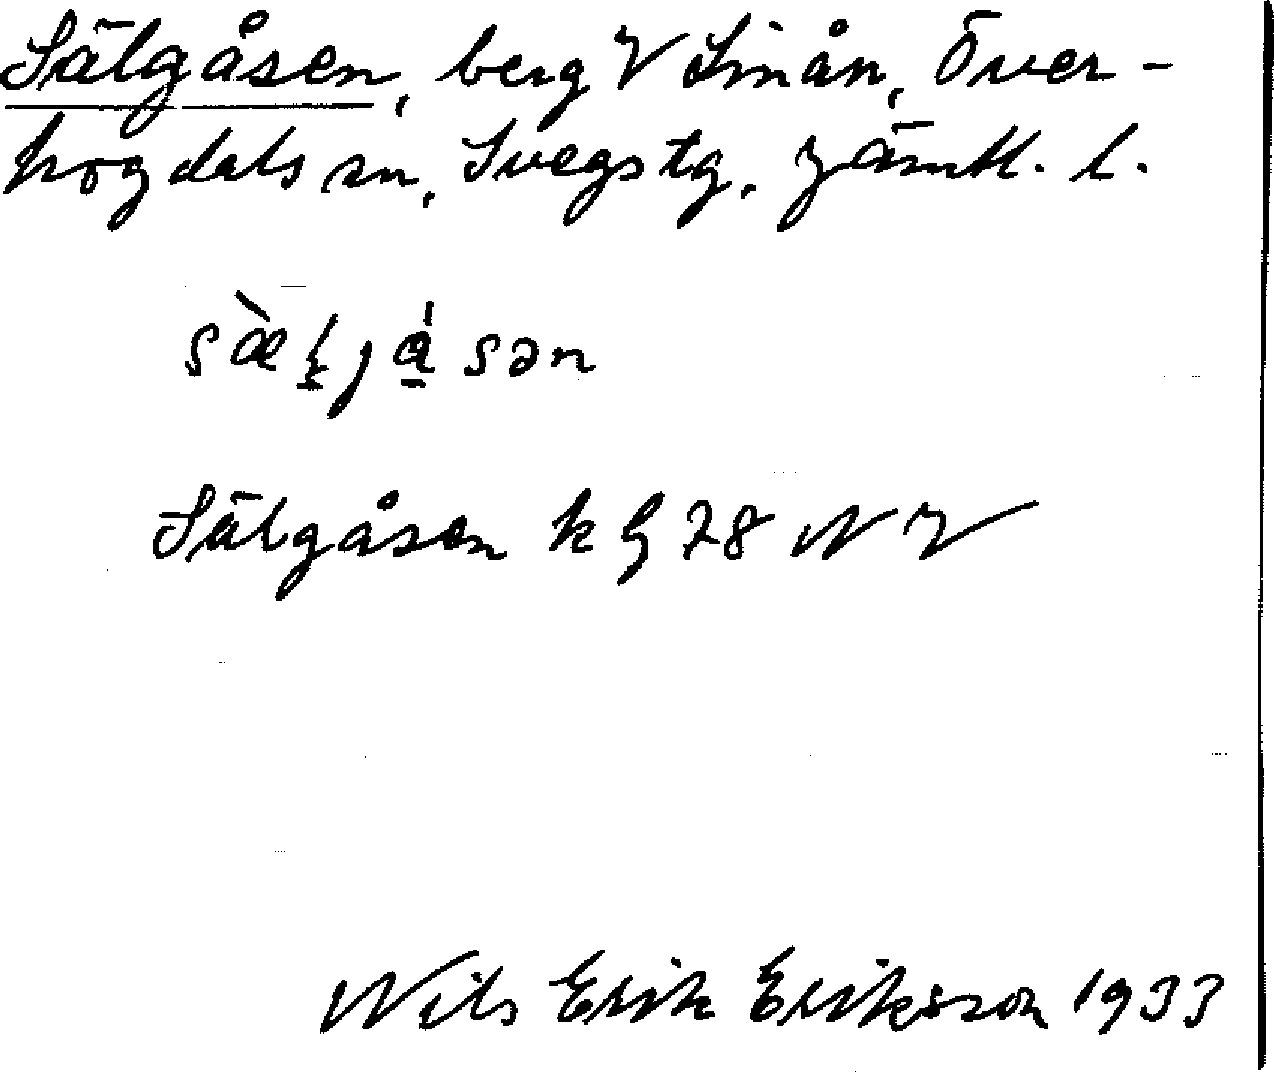 Sälgåsen, berg V Linån, Över-
hogdals sn, Svegs tg. Jämtl. l.
Sälgåsen k G 78 NV
Nils Erik Eriksson 1933